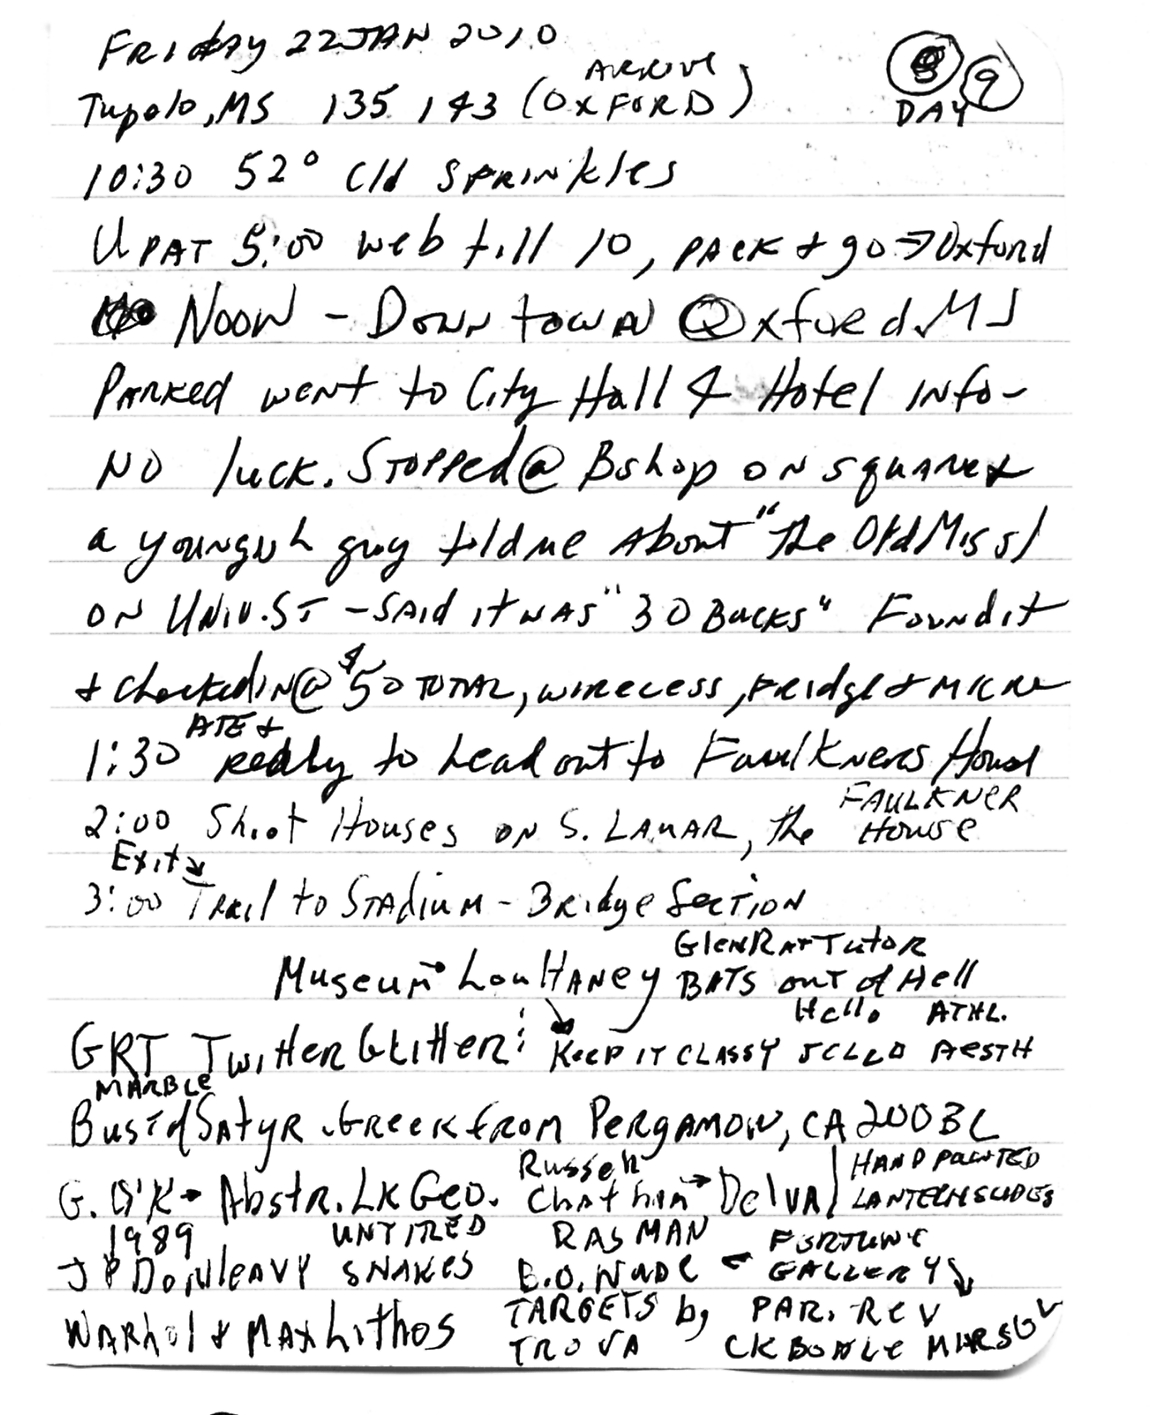 FRIDAY 22 JAN 2010
ARRIVE
Tupelo, MS 135 143 (OXFORD)
8 9
DAY
10:30 52° Cld SPRINkles
UP AT 5:00 web till 10, PACK + go → Oxford
NOON - DOWNTOWN Oxford, MS
PARKED went to City Hall & Hotel INFO-
NO luck. STOPPED @ Bshop ON SQUARE &
a youngish guy told me About "The Old Miss"
ON UNIV. ST - SAId it WAS "30 BUCKS" FOUND it
+ checked IN @ $50 TOTAL, WIRELESS, FRIdge + MICRO
ATE +
1:30 ready to head out to FaulKNERS House
FAULKNER
2:00 Shoot Houses ON S. LAMAR, the House
Exit
3:00 TRAil to STAdiuM - BRidge SECTION
GlenRAYTutOR
Museum → Lou HANEY BATS OUT of HEll
Hello ATHL.
GRT TwitteR GLitteR: KEEP IT CLASSY JELLO AESTH
MARBLE
BUST of SATYR. GREEK from PERGAMON, CA 200 BC
Russell HAND PAINTED
G. O'K → Abstr. LK Geo. Chatham → DelVA LANTERN SLIDES
1989 UNTITLED RAS MAN FORTUNE
J P DONLEAVY SNAKES B.O. NUDE GALLERY
TARGETS by PAR. REV
WARhol + MAX Lithos TROVA